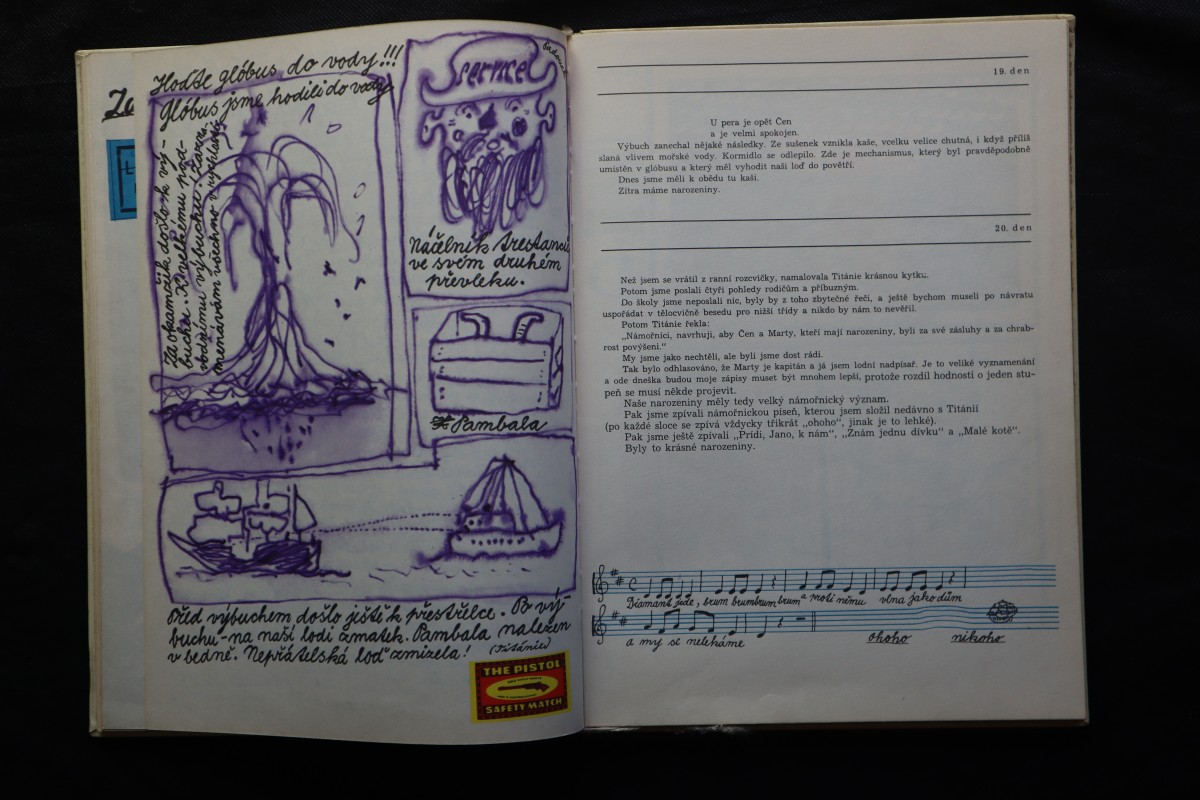 Za
Hoďte glóbus do vody!!!
Glóbus jsme hodili do vody
Za okamžik došlo k vý-
buchu. K velkému pod-
vodnímu výbuchu!
všechno
Sermel
Náčelník trestanců
ve svém druhém
převleku.
Pambala
Před výbuchem došlo jistě k přestřelce. Po vý-
buchu-na naší lodi zmatek. Pambala nalezen
v bedně. Nepřátelská loď zmizela!
(Titánie)
THE PISTOL
SAFETY MATCH
19. den
U pera je opět Čen
a je velmi spokojen.
Výbuch zanechal nějaké následky. Ze sušenek vznikla kaše, vcelku velice chutná, i když příliš
slaná vlivem mořské vody. Kormidlo se odlepilo. Zde je mechanismus, který byl pravděpodobně
umístěn v glóbusu a který měl vyhodit naši loď do povětří.
Dnes jsme měli k obědu tu kaši.
Zítra máme narozeniny.
20. den
Než jsem se vrátil z ranní rozcvičky, namalovala Titánie krásnou kytku.
Potom jsme poslali čtyři pohledy rodičům a příbuzným.
Do školy jsme neposlali nic, byly by z toho zbytečné řeči, a ještě bychom museli po návratu
uspořádat v tělocvičně besedu pro nižší třídy a nikdo by nám to nevěřil.
Potom Titánie řekla:
„Námořníci, navrhuji, aby Čen a Marty, kteří mají narozeniny, byli za své zásluhy a za chrab-
rost povýšeni.“
My jsme jako nechtěli, ale byli jsme dost rádi.
Tak bylo odhlasováno, že Marty je kapitán a já jsem lodní nadpísař. Je to veliké vyznamenání
a ode dneška budou moje zápisy muset být mnohem lepší, protože rozdíl hodností o jeden stu-
peň se musí někde projevit.
Naše narozeny měly tedy velký námořnický význam.
Pak jsme zpívali námořnickou píseň, kterou jsem složil nedávno s Titánií
(po každé sloce se zpívá vždycky třikrát „ohoho“, jinak je to lehké).
Pak jsme ještě zpívali „Pridi, Jano, k nám“, „Znám jednu dívku“ a „Malé kotě“.
Byly to krásné narozeniny.
Diamant jede, brum brumbrum brum a proti němu vlna jako dům
a my se nelekáme ohoho nikoho